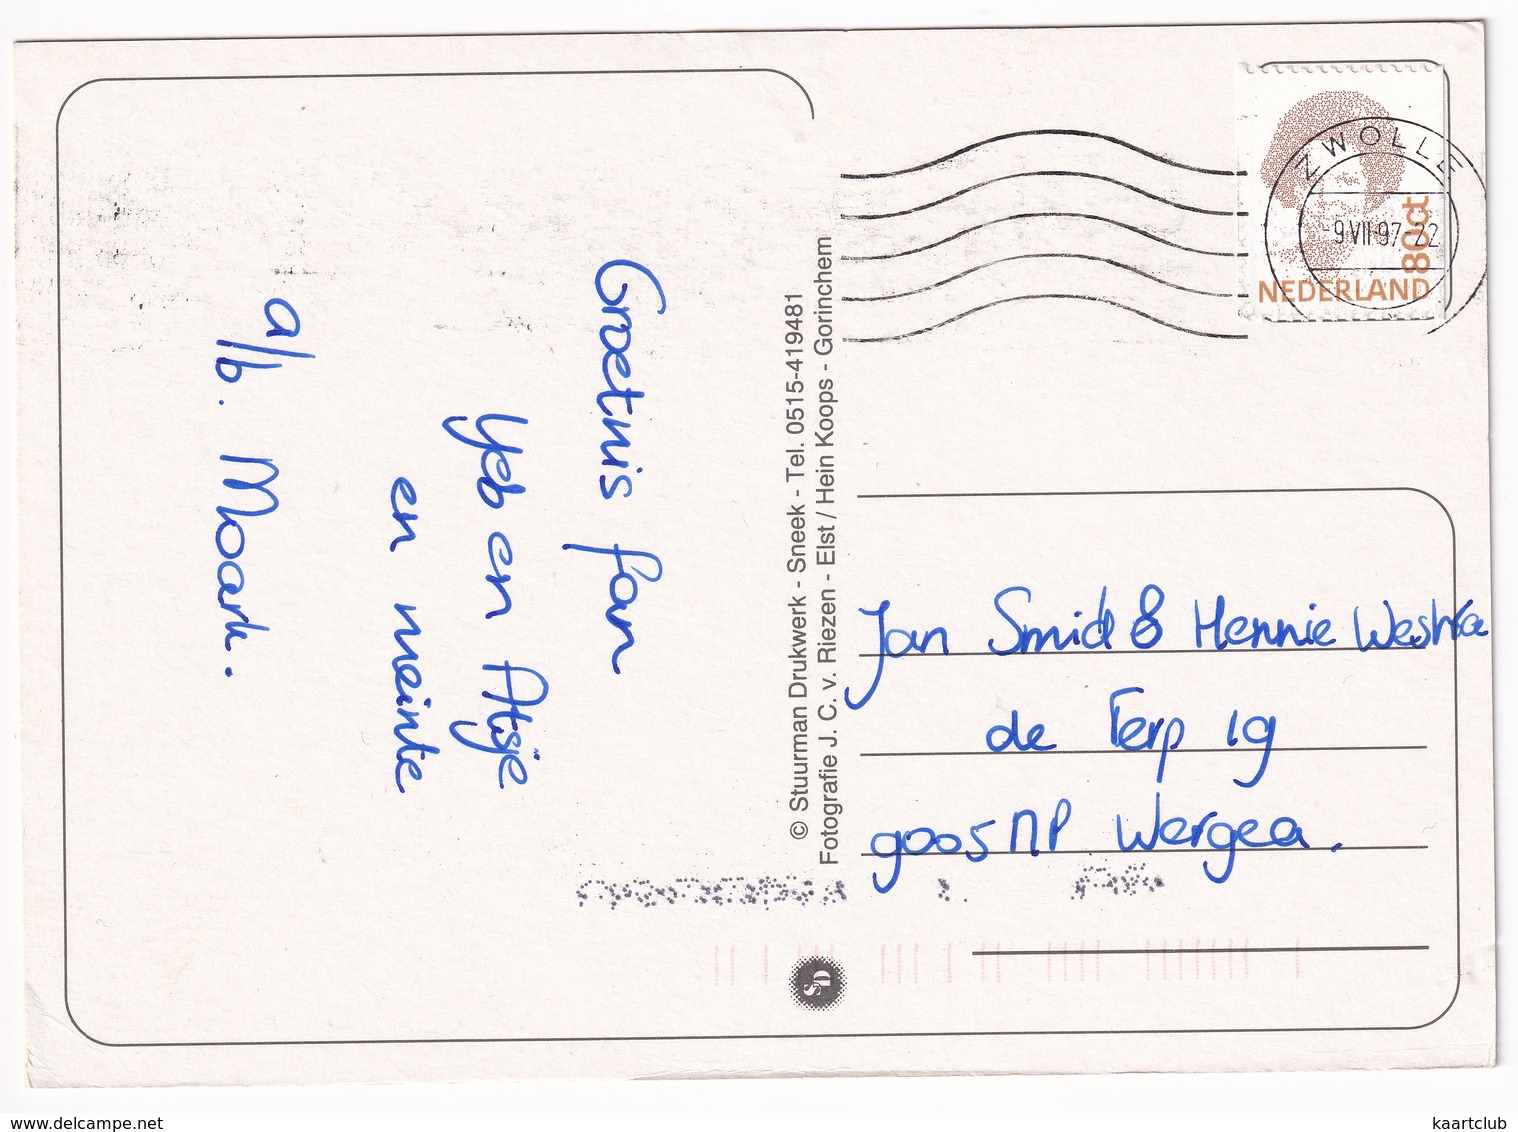 Groetnis fan
Yeb en Atsje
en meinte
a/b. Moark.
© Stuurman Drukwerk - Sneek - Tel. 0515-419481
Fotografie J. C. v. Riezen - Elst / Hein Koops - Gorinchem
ZWOLLE
-9VII97-22
80ct
NEDERLAND
Jan Smid & Hennie Westra
de Terp 19
9005 NP Wergea.
SD
www.delcampe.net
kaartclub